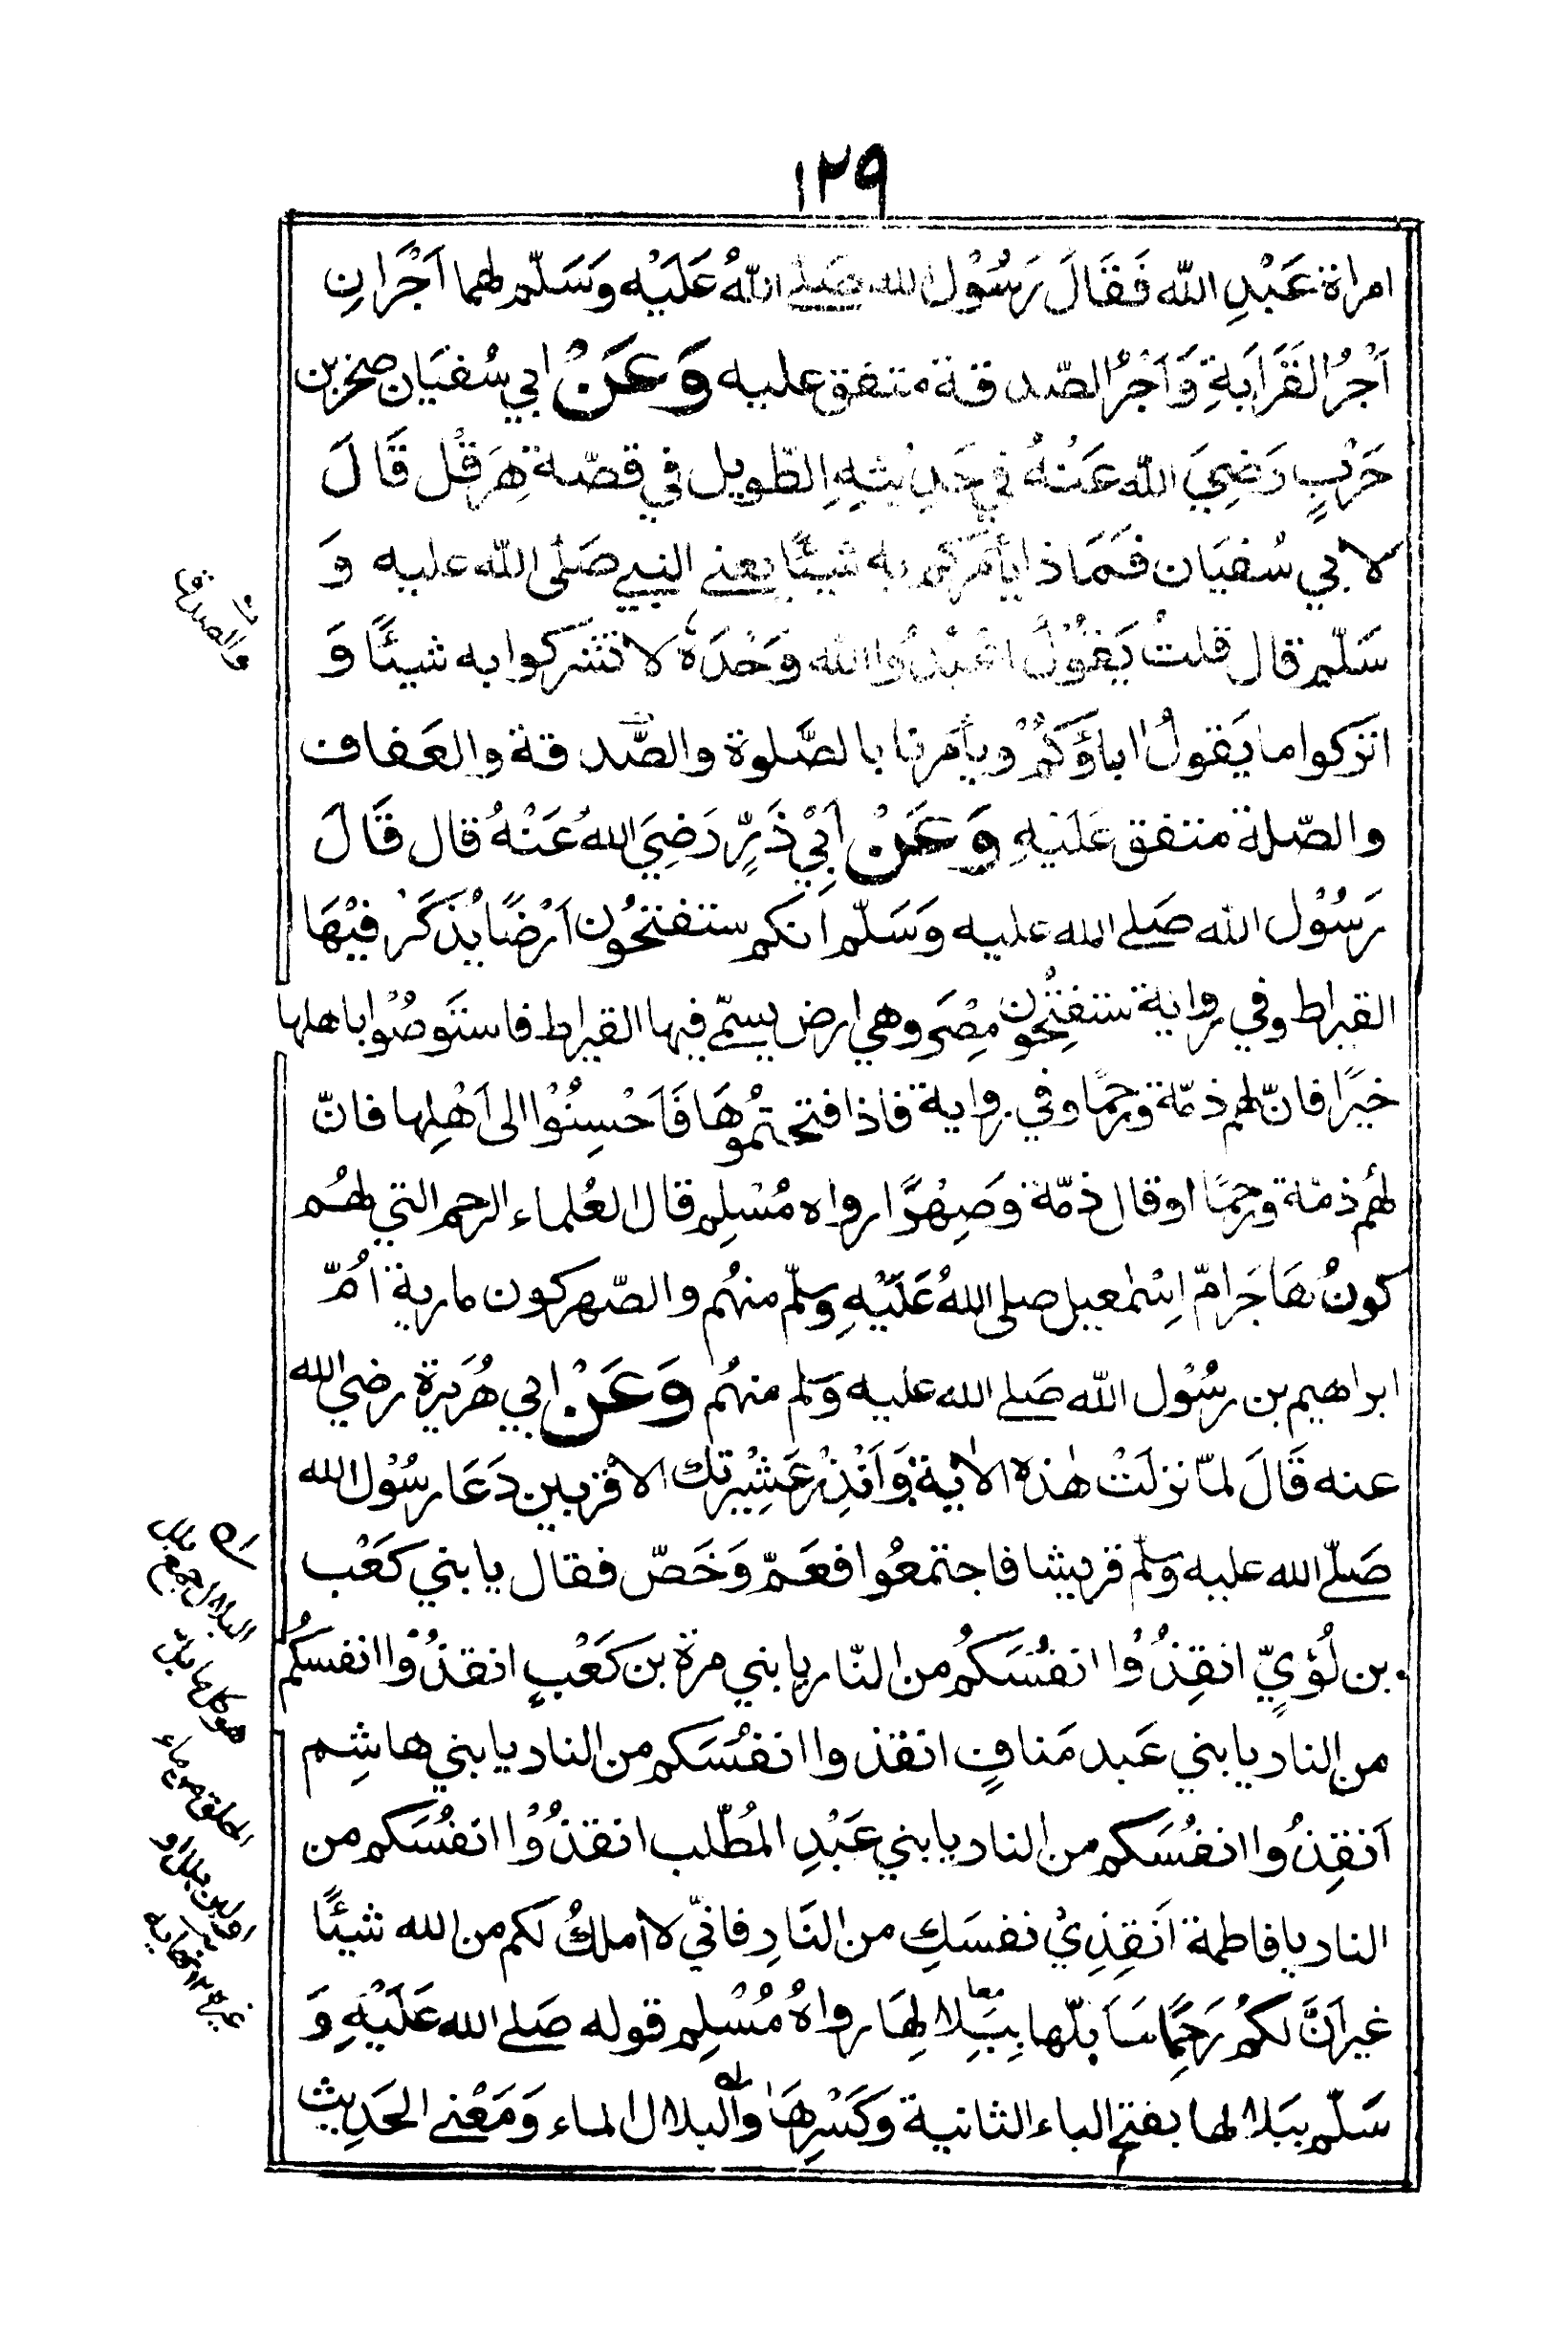 ١٢٩
امراة عَبْدِ اللّه فَقَالَ رَسُوْل الله صَلے اللهُ عَلَيْه وَسَلّم لهما اَجْرانِ
اَجْرُ القَرَابَةِ وَاَجْرُ الصّدقة متفق عليه وَعَنْ ابي سُفيَان صخر بن
حَرْبٍ رَضِيَ اللّه عَنْهُ في حَدِيْثِهِ الطّويل في قصّة هِرَقْل قَالَ
لابي سُفيَان فمَاذا يأمركم به شيئًا يعنے النبي صَلى اللّه عليه وَ
سَلّم قال قلتُ يَقُوْلُ اعْبُدُوا الله وَحْدَهٗ لا تشركوا به شيئًا وَ
اتركوا ما يَقولُ اباؤكمْ ويأمرنا بالصَّلوة والصَّدقة والعَفاف
والصّلة متفق عَلَيْهِ وَعَنْ اَبِيْ ذَرٍّ رَضِيَ اللهُ عَنْهُ قال قَالَ
رَسُوْل الله صَلے الله عليه وَسَلّم اَنكم ستفتحُون اَرْضًا يُذكَرُ فيْهَا
القيراط وفي رواية ستفتِحُون مِصْرَ وهي ارض يسمّے فيها القيراط فاستَوصُوا باهلها
خيرًا فانّ لهم ذمّة ورحمًا وفي رواية فاذا فتحتمُوهَا فَاَحْسِنُوْا الى اَهْلِها فانّ
لهُم ذمّة ورحمًا او قال ذمّة وَصِهْرًا رواه مُسْلِم قال العُلماء الرحم التي لهُم
كونُ هَاجَرَ امّ اِسْمٰعيل صلى اللهُ عَلَيْهِ وسلّم منهُم والصّهر كون مارية اُمّ
ابراهيم بن رسُوْل اللّه صَلے الله عليه وَسَلم منهُم وَعَنْ ابي هُرَيرة رضي الله
عنه قَالَ لمّا نزلَتْ هٰذه الاٰية وَاَنْذِرْ عَشِيْرتك الاقربين دَعَا رسُوْل الله
صَلّے الله عليه وسَلّم قريشا فاجتمعُوا فعَمّ وَخَصّ فقال يا بني كَعْب
بن لُؤيٍّ انقِذُوْا انفُسَكُم من النّار يا بني مرة بن كَعْبٍ انقذُوْا انفسكُم
من النار يا بني عَبد مَنافٍ انقذوا انفُسَكم من النار يا بني هاشِم
اَنقِذُوا انفُسَكم من النار يا بني عَبْدِ المُطّلب انقذُوْا انفُسَكم من
النار يا فاطمة اَنقِذِيْ نفسَكِ من النَارِ فاني لا املكُ لكم من الله شيئًا
غير اَنَّ لكُم رَحِمًا سَاَبلّها بِبَلالِهَا رواهُ مُسْلِم قوله صَلے الله عَلَيْهِ وَ
سَلّم ببَلالها بفتح الباء الثانية وَكَسْرِهَا والبلال الماء وَمَعْنے الحَدِيث
والصدق
البلال جمع بلل